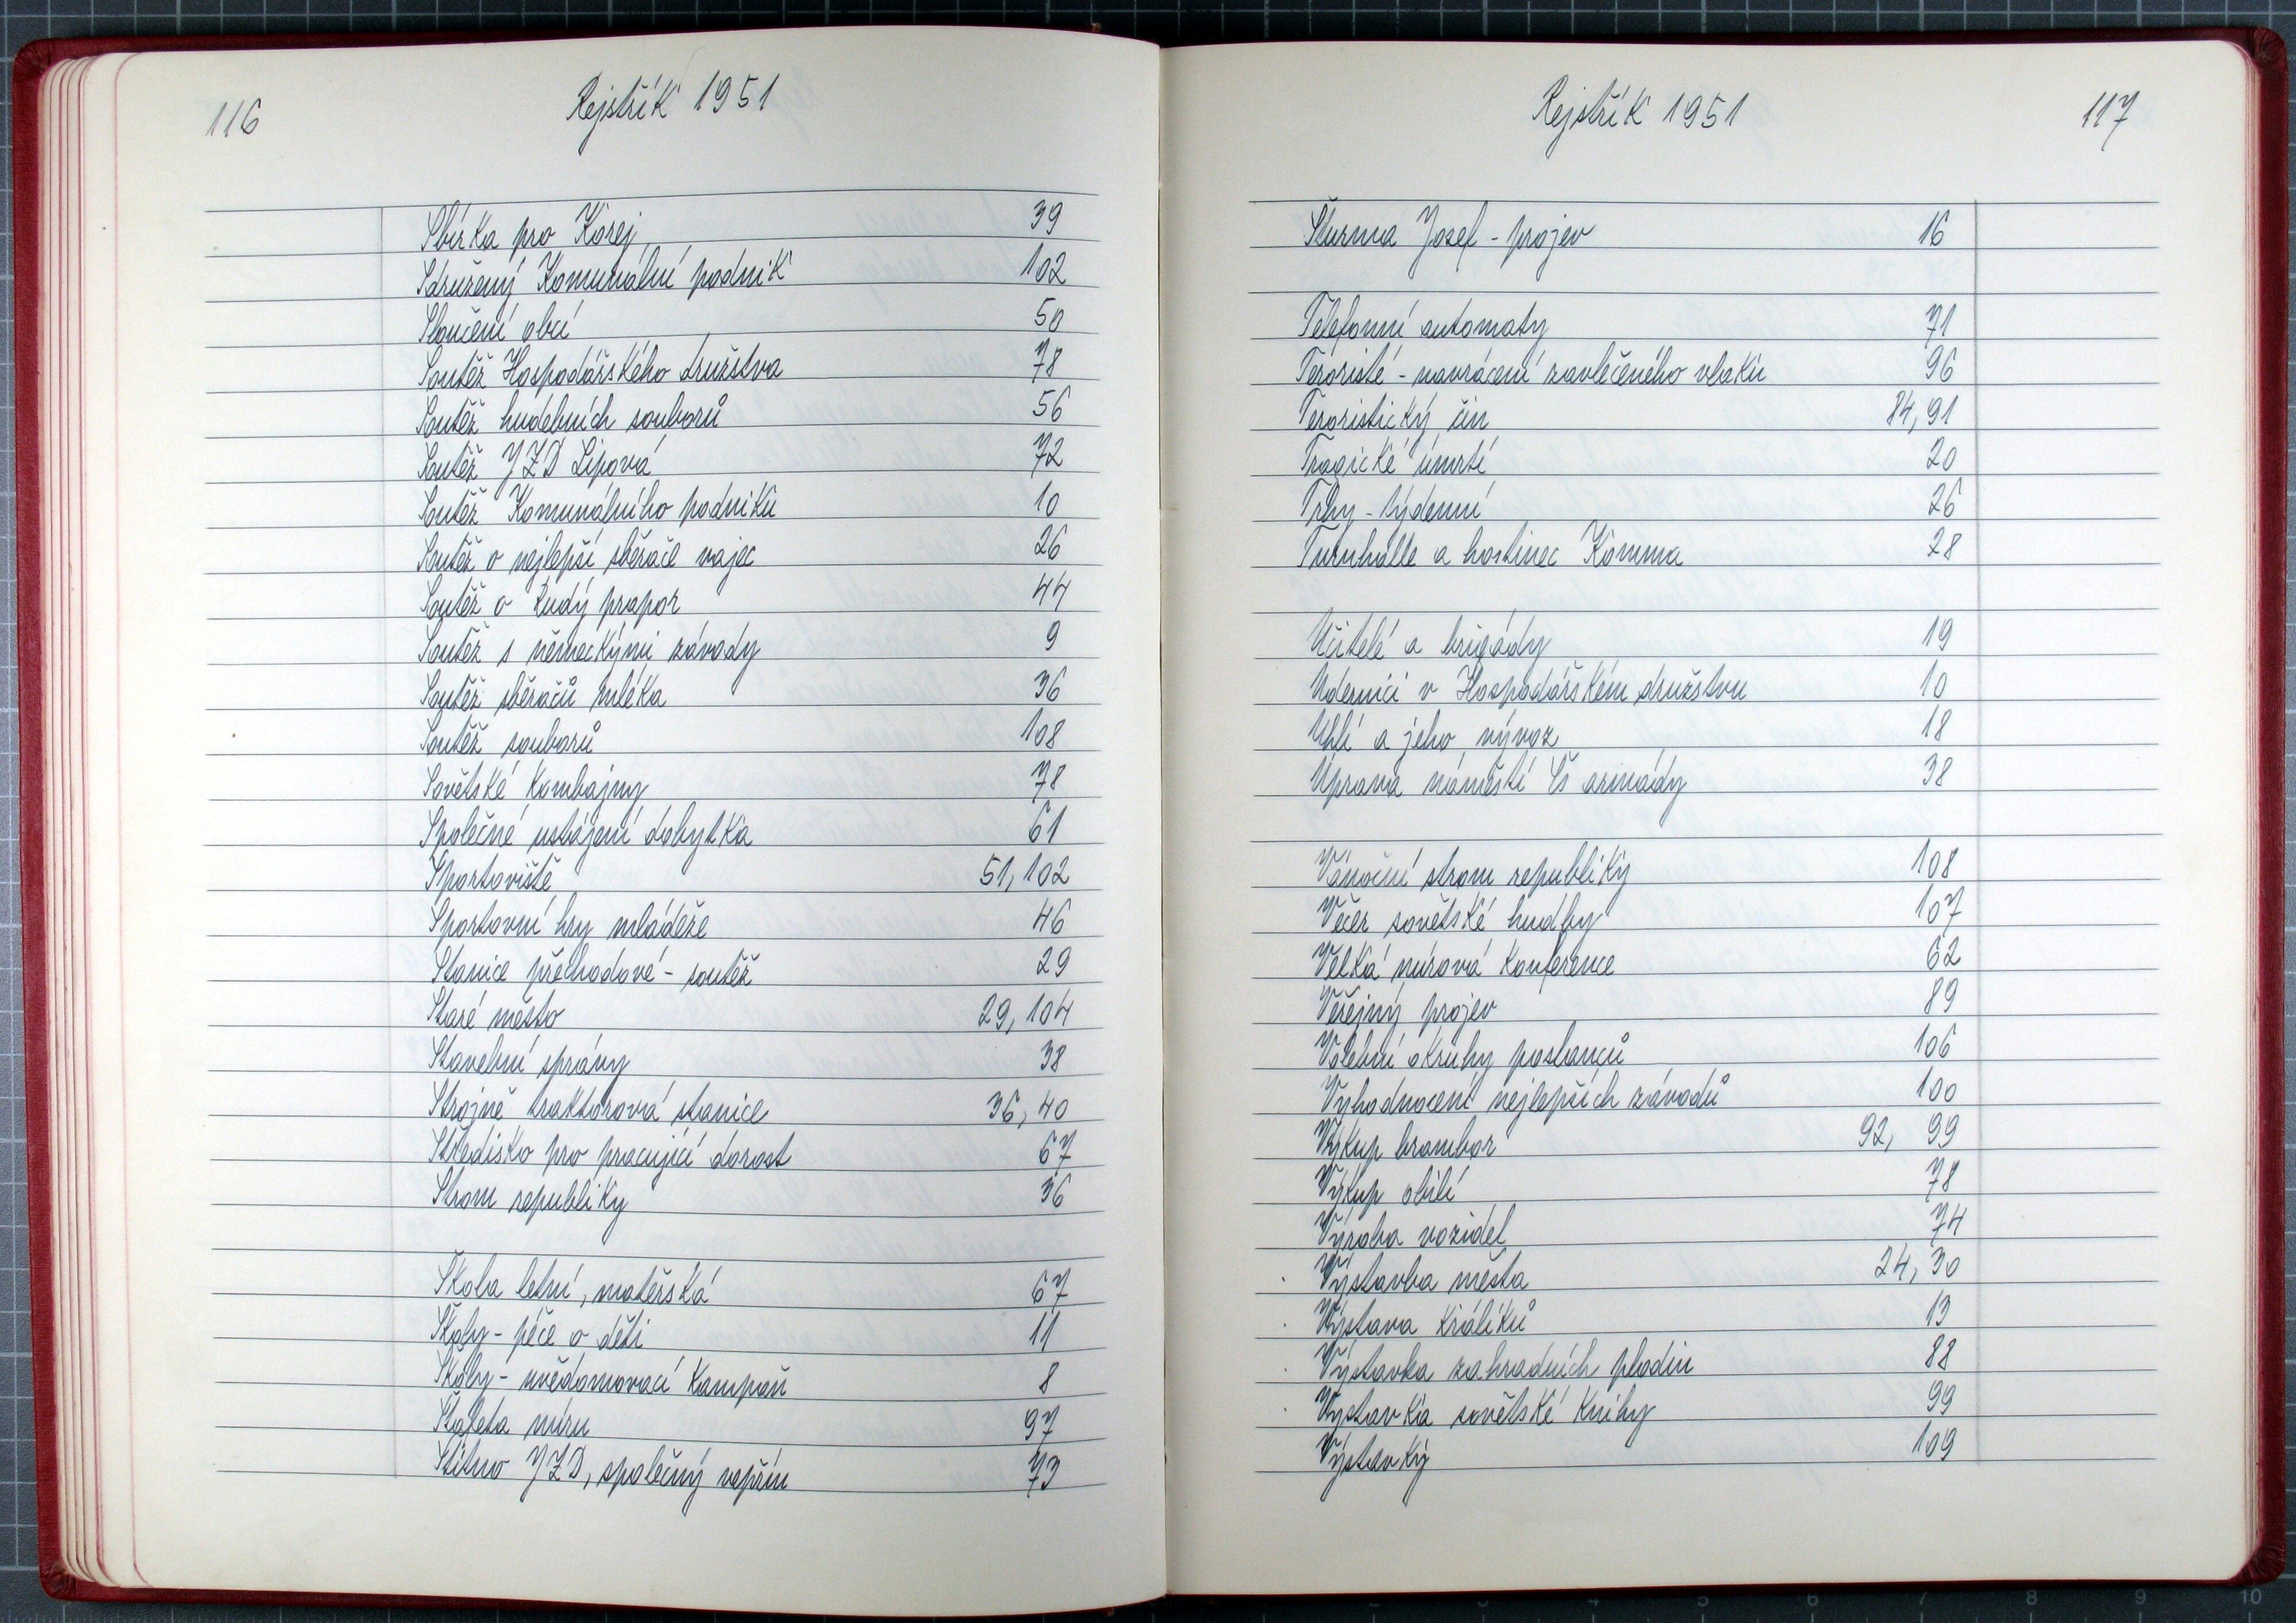 116
Rejstřík 1951
Sbírka pro Korej 39
Sdružený Komunální podnik 102
Sloučení obcí 50
Soutěž Hospodářského družstva 78
Soutěž hudebních souborů 56
Soutěž JZD Lipová 72
Soutěž Komunálního podniku 10
Soutěž o nejlepší sběrače vajec 26
Soutěž o Rudý prapor 44
Soutěž s německými závody 9
Soutěž sběračů mléka 36
Soutěž souborů 108
Sovětské kombajny 78
Společné ustájení dobytka 61
Sportoviště 51, 102
Sportovní hry mládeže 46
Stanice přechodové - soutěž 29
Staré město 29, 104
Stavební správy 38
Strojně traktorová stanice 36, 40
Středisko pro pracující dorost 67
Strom republiky 36
Škola letní, mateřská 67
Školy - péče o děti 11
Školy - uvědomovací kampaň 8
Štafeta míru 97
Štítno JZD, společný vepřín 73
Rejstřík 1951
117
Šturma Josef - projev 16
Telefonní automaty 71
Teroristé - navrácení zavlečeného vlaku 96
Teroristický čin 84, 91
Tragické úmrtí 20
Trhy - týdenní 26
Turnhalle a hostinec Komma 28
Učitelé a brigády 19
Úderníci v Hospodářském družstvu 10
Uhlí a jeho vývoz 18
Úprava náměstí Čs armády 38
Vánoční strom republiky 108
Večer sovětské hudby 107
Velká mírová konference 62
Veřejný projev 89
Volební okruhy poslanců 106
Vyhodnocení nejlepších závodů 100
Výkup brambor 92, 99
Výkup obilí 78
Výroba vozidel 74
Výstavba města 24, 30
Výstava králíků 13
Výstavka zahradních plodin 88
Výstavka sovětské knihy 99
Výstavky 109
4 5 6 7 8 9 10